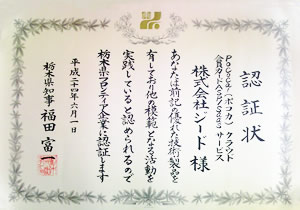 認証状
PocoCa(ポコカ)クラウド
会員カードASP/SaaSサービス
株式会社ジード 様
あなたは前記の優れた技術製品を
有しており他の模範となる活動を
実践していると認められるので
栃木県フロンティア企業に認証します
平成二十四年六月一日
栃木県知事 福田富一